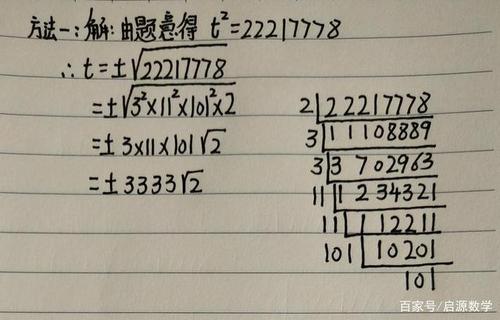 方法一:解:由题意得 t²=22217778
∴t=±√22217778
=±√3²×11²×101²×2
=±3×11×101√2
=±3333√2
2 22217778
3 11108889
3 3702963
11 1234321
11 112211
101 10201
101
百家号/启源数学